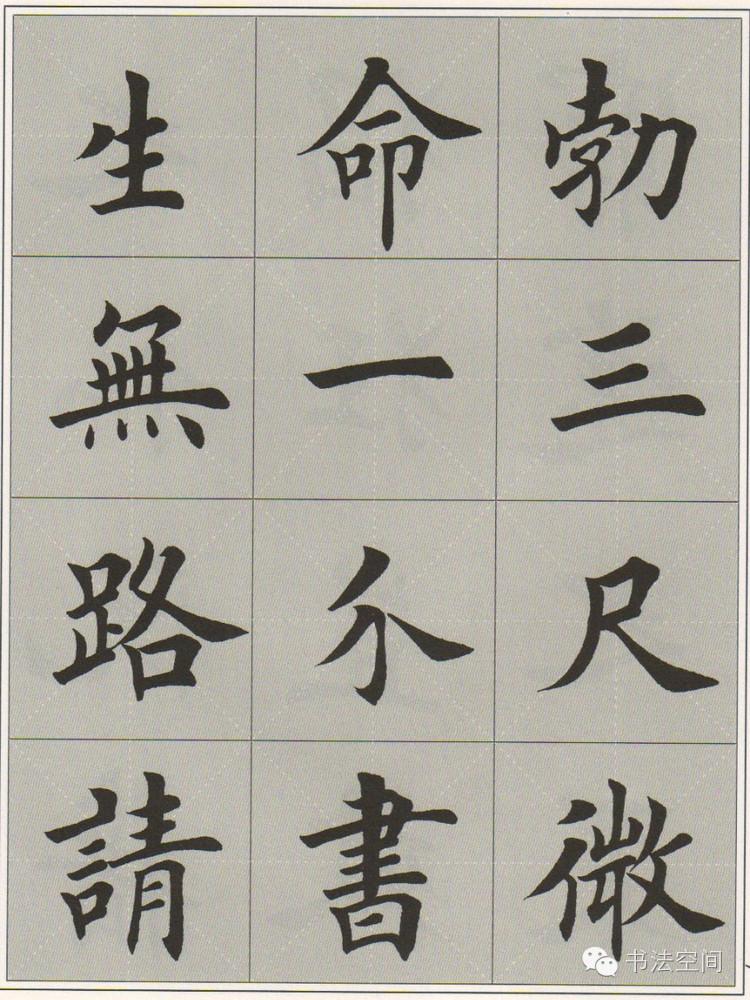 勃三尺微
命一介書
生無路請
书法空间